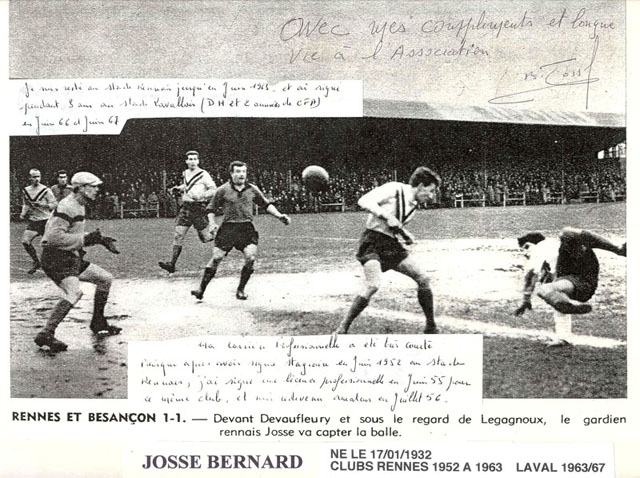 Avec mes compliments et longue
vie à l'Association
B. Josse
Je suis resté au stade Rennais jusqu'en Juin 1963, et ai signé
pendant 3 ans au stade Lavallois (DH et 2 années de CFA)
en Juin 66 et Juin 67
Ma carrière Professionnelle a été très courte
Puisque après avoir signé stagiaire en Juin 1952 au stade
Rennais, j'ai signé une licence professionnelle en Juin 55 pour
ce même club, et suis redevenu amateur en Juillet 56.
RENNES ET BESANÇON 1-1. — Devant Devaufleury et sous le regard de Legagnoux, le gardien
rennais Josse va capter la balle.
JOSSE BERNARD NE LE 17/01/1932
CLUBS RENNES 1952 A 1963 LAVAL 1963/67